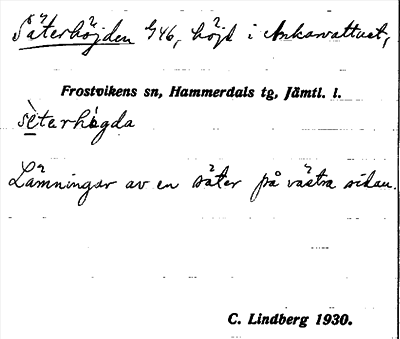 Säterhöjden 946, höjd i Ankarvattnet,
Frostvikens sn, Hammerdals tg, Jämtl. l.
sèterhögda
Lämningar av en säter på västra sidan.
C. Lindberg 1930.